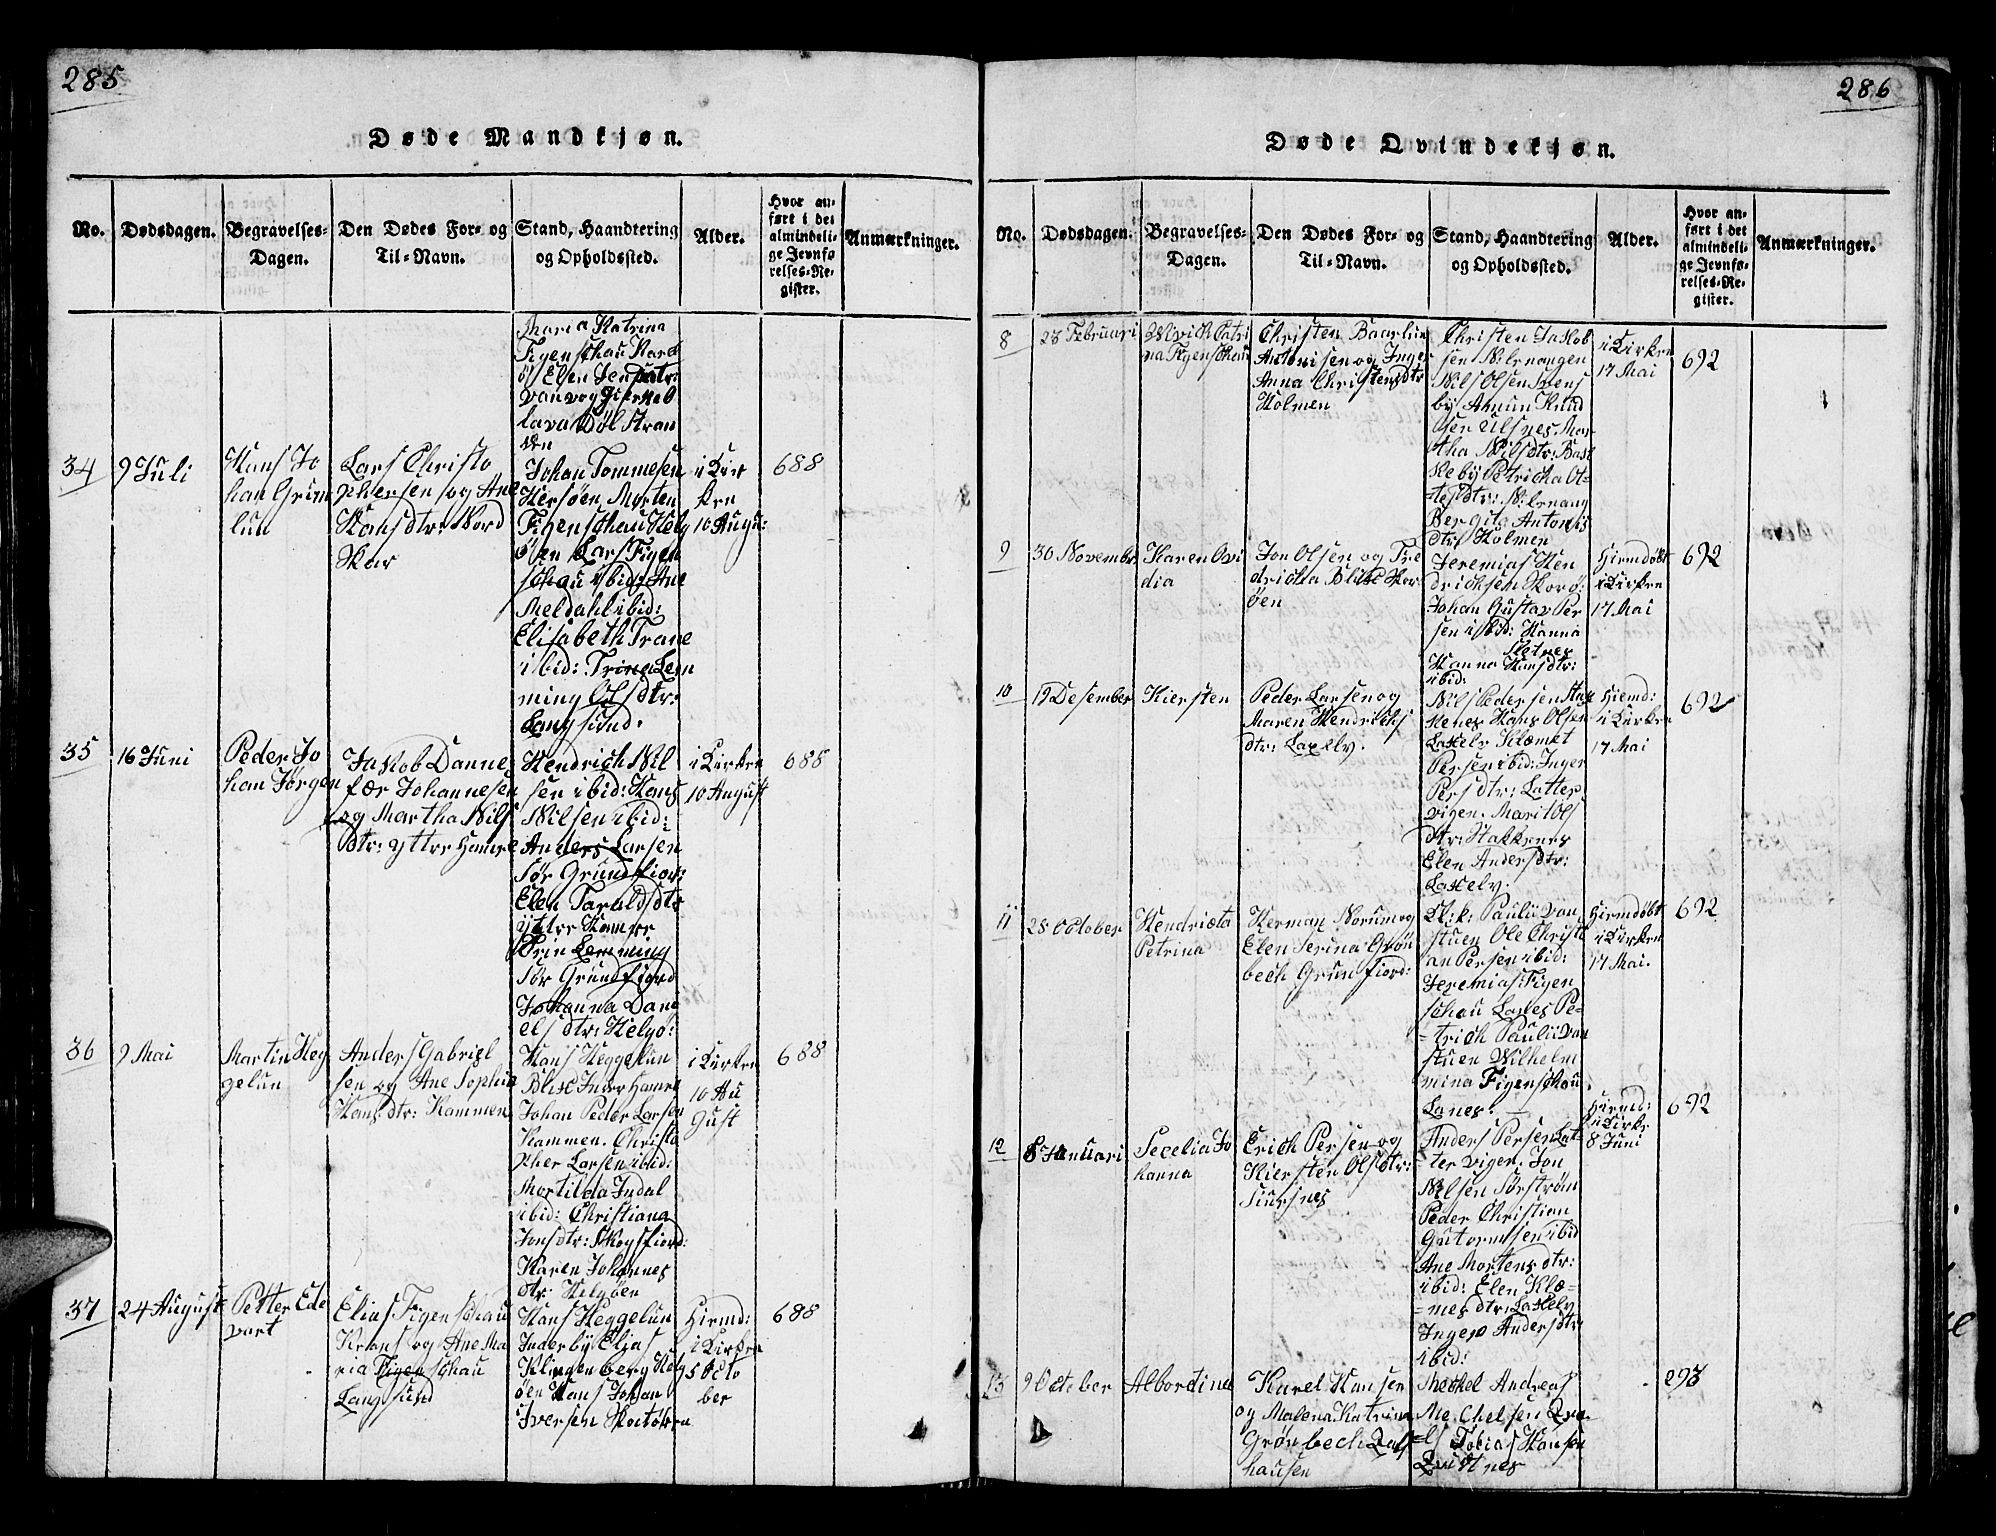 285
Døde Mandkjøn.
No.
Dødsdagen.
Begravelses-
Dagen.
Den Dødes For- og
Til-Navn.
Stand, Haandtering
og Opholdssted.
Alder.
Hvor an-
ført i det
almindeli-
ge Jevnfø-
relses-Re-
gister.
Anmærkninger.
Maria Katrina
Figenschau Karl
Øl
Stran
den
34
9 Juli
Hans Jo
han Grim
lun
Lars Christo
phersen og Ane
Hansdtr: Nord
Skar
Johan Tommesen
Hersøen Morten
Figenschau Helg
øen Lars Figen
schau ibid: Ane
Meldahl ibid:
Elisabeth Trane
ibid: Trine Lem
ming Olsdtr:
Langsund:
i Kir
ken
10 Augu:
688
35
16 Juni
Peder Jo
han Jørgen
Jakob Danne
fær Johannesen
og Martha Nils
dtr: Yttre Hamre
Hendrich Nil
sen ibid: Hans
Nilsen ibid:
Anders Larsen
Sør Grundfior:
Elen Taraldsdtr
yttre Hamre
Trin Lemming
Sør Grundfiord
Johanna Dani
elsdtr: Helgø:
i Kirken
10 August
688
36
9 Mai
Martin Heg
gelun
Anders Gabriel
sen og Ane Sophia
Hansdtr: Kammen
Hans Heggelun
Blix Inder Hamre
Johan Peder Larsen
Kammen. Christo
pher Larsen ibid:
Mortilda Indal
ibid: Christiana
Jonsdtr: Skogsfiord:
Karen Johannes
dtr: Helgøen
i Kirken
10 Au
Gust
688
37
24 August
Petter Ede
vart
Elias Figenschau
Krans og Ane Ma
ria Figenschau
Langsund
Hans Heggelun
Inderby Elias
Klingenberg Helg
øen Hans Johan
Iversen Skotøren
Hiemd:
i Kirken
5 Octo
ber
688
286
Døde Qvindekjøn.
No.
Dødsdagen.
Begravelses-
Dagen.
Den Dødes For- og
Til-Navn.
Stand, Haandtering
og Opholdssted.
Alder.
Hvor an-
ført i det
almindeli-
ge Jevnfø-
relses-Re-
gister.
Anmærkninger.
8
28 Februari
Catri
na Figenschau
Christen Baarlin
Antonisen og Inger
Anna Christensdtr
Holmen
Christen Jakob
sen Nilenangen
Nils Olsen Svens
by Amun Knud
sen Ulsnes. Mar
tha Nilsdtr: Bak
keby Petricha Ot-
tesdtr: Nilenang
Bergita Antonis
dtr: Holmen
i Kirken
17 Mai
692
9
30 Novembr
Karen Ovi
dia
Jon Olsen og Fre
dricha Blix Skor
øen
Jeremias Hen
drichsen Skorø:
Johan Gustav Per
sen ibid: Hanna
Sletnes
Hanna Hansdtr:
ibid:
Hiemdøbt
i Kirken
17 Mai
692
10
19 Desember
Kiersten
Peder Larsen og
Maren Hendrichs
dtr: Laxelv.
Nils Pedersen Stak
kenes Hans Olsen
Laxelv Klæmet
Persen ibid: Inger
Persdtr: Latter
vigen. Marit Ols
dtr: Stakkenes
Elen Andersdtr:
Laxelv.
Hiemd:
i Kirken
17 Mai
692
11
28 October
Hendricta
Petrina
Herman Norum og
Elen Serina Grøn
bech Grunfiord:
Kl: k: Paulii van
stuen Ole Christi
an Persen ibid:
Jeremias Figen
schau Lanes Pe-
=trich Paulii van
stuen Wilhelm
mina Figenschau
Lanes.
Hiemdøbt
i Kirken
17 Mai.
692
12
8 Januari
Secelia Jo
hanna
Erich Persen og
Kiersten Olsdtr:
Siursnes
Anders Persen Lat-
=tervigen. Jon
Nilsen Sørstrøm
Peder Christian
Gutormsen ibid
Ane Mortensdtr:
ibid: Elen Klæ-
=mesdtr: Laxelv
Inger Andersdtr
ibid:
Hiemd:
i Kirke
8 Juni
692
13
9 October
Albertine
Karel Hansen
og Malena Katrina
Grønbech Qals
hausen
Mekkel Andreas
Mechelsen Qva-
=ls Tobias Hansen
Qvitnes
293